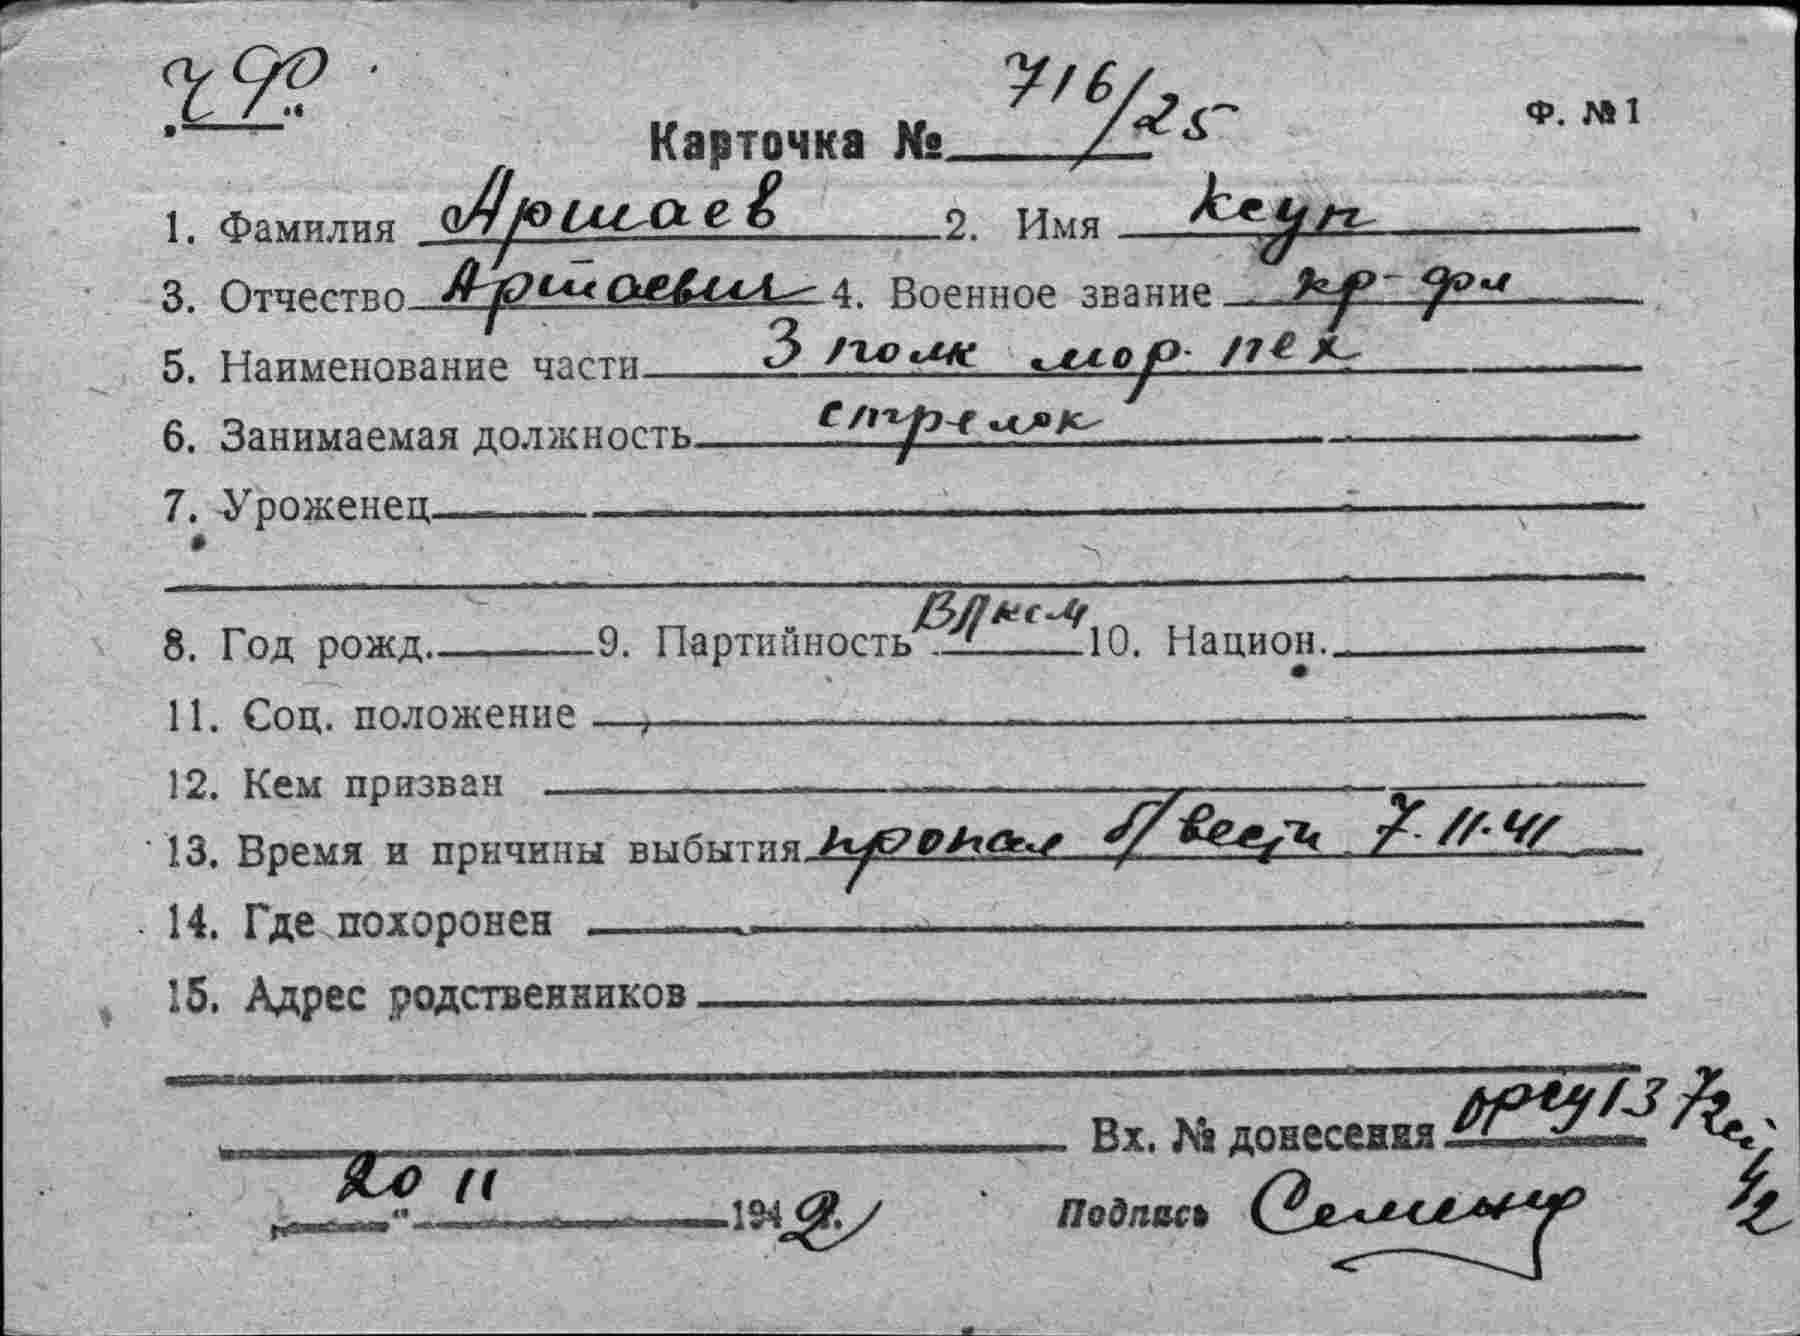 Ч ф
Карточка № 716/25 Ф. № 1
1. Фамилия Аршаев 2. Имя Кеуп
3. Отчество Артаевич 4. Военное звание кр-фл
5. Наименование части 3 полк мор. пех
6. Занимаемая должность стрелок
7. Уроженец
8. Год рожд. 9. Партийность ВЛКСМ 10. Национ.
11. Соц. положение
12. Кем призван
13. Время и причины выбытия пропал б/вести 7.11.41
14. Где похоронен
15. Адрес родственников
Вх. № донесения оргу 13
"20" 11 1942. Подпись